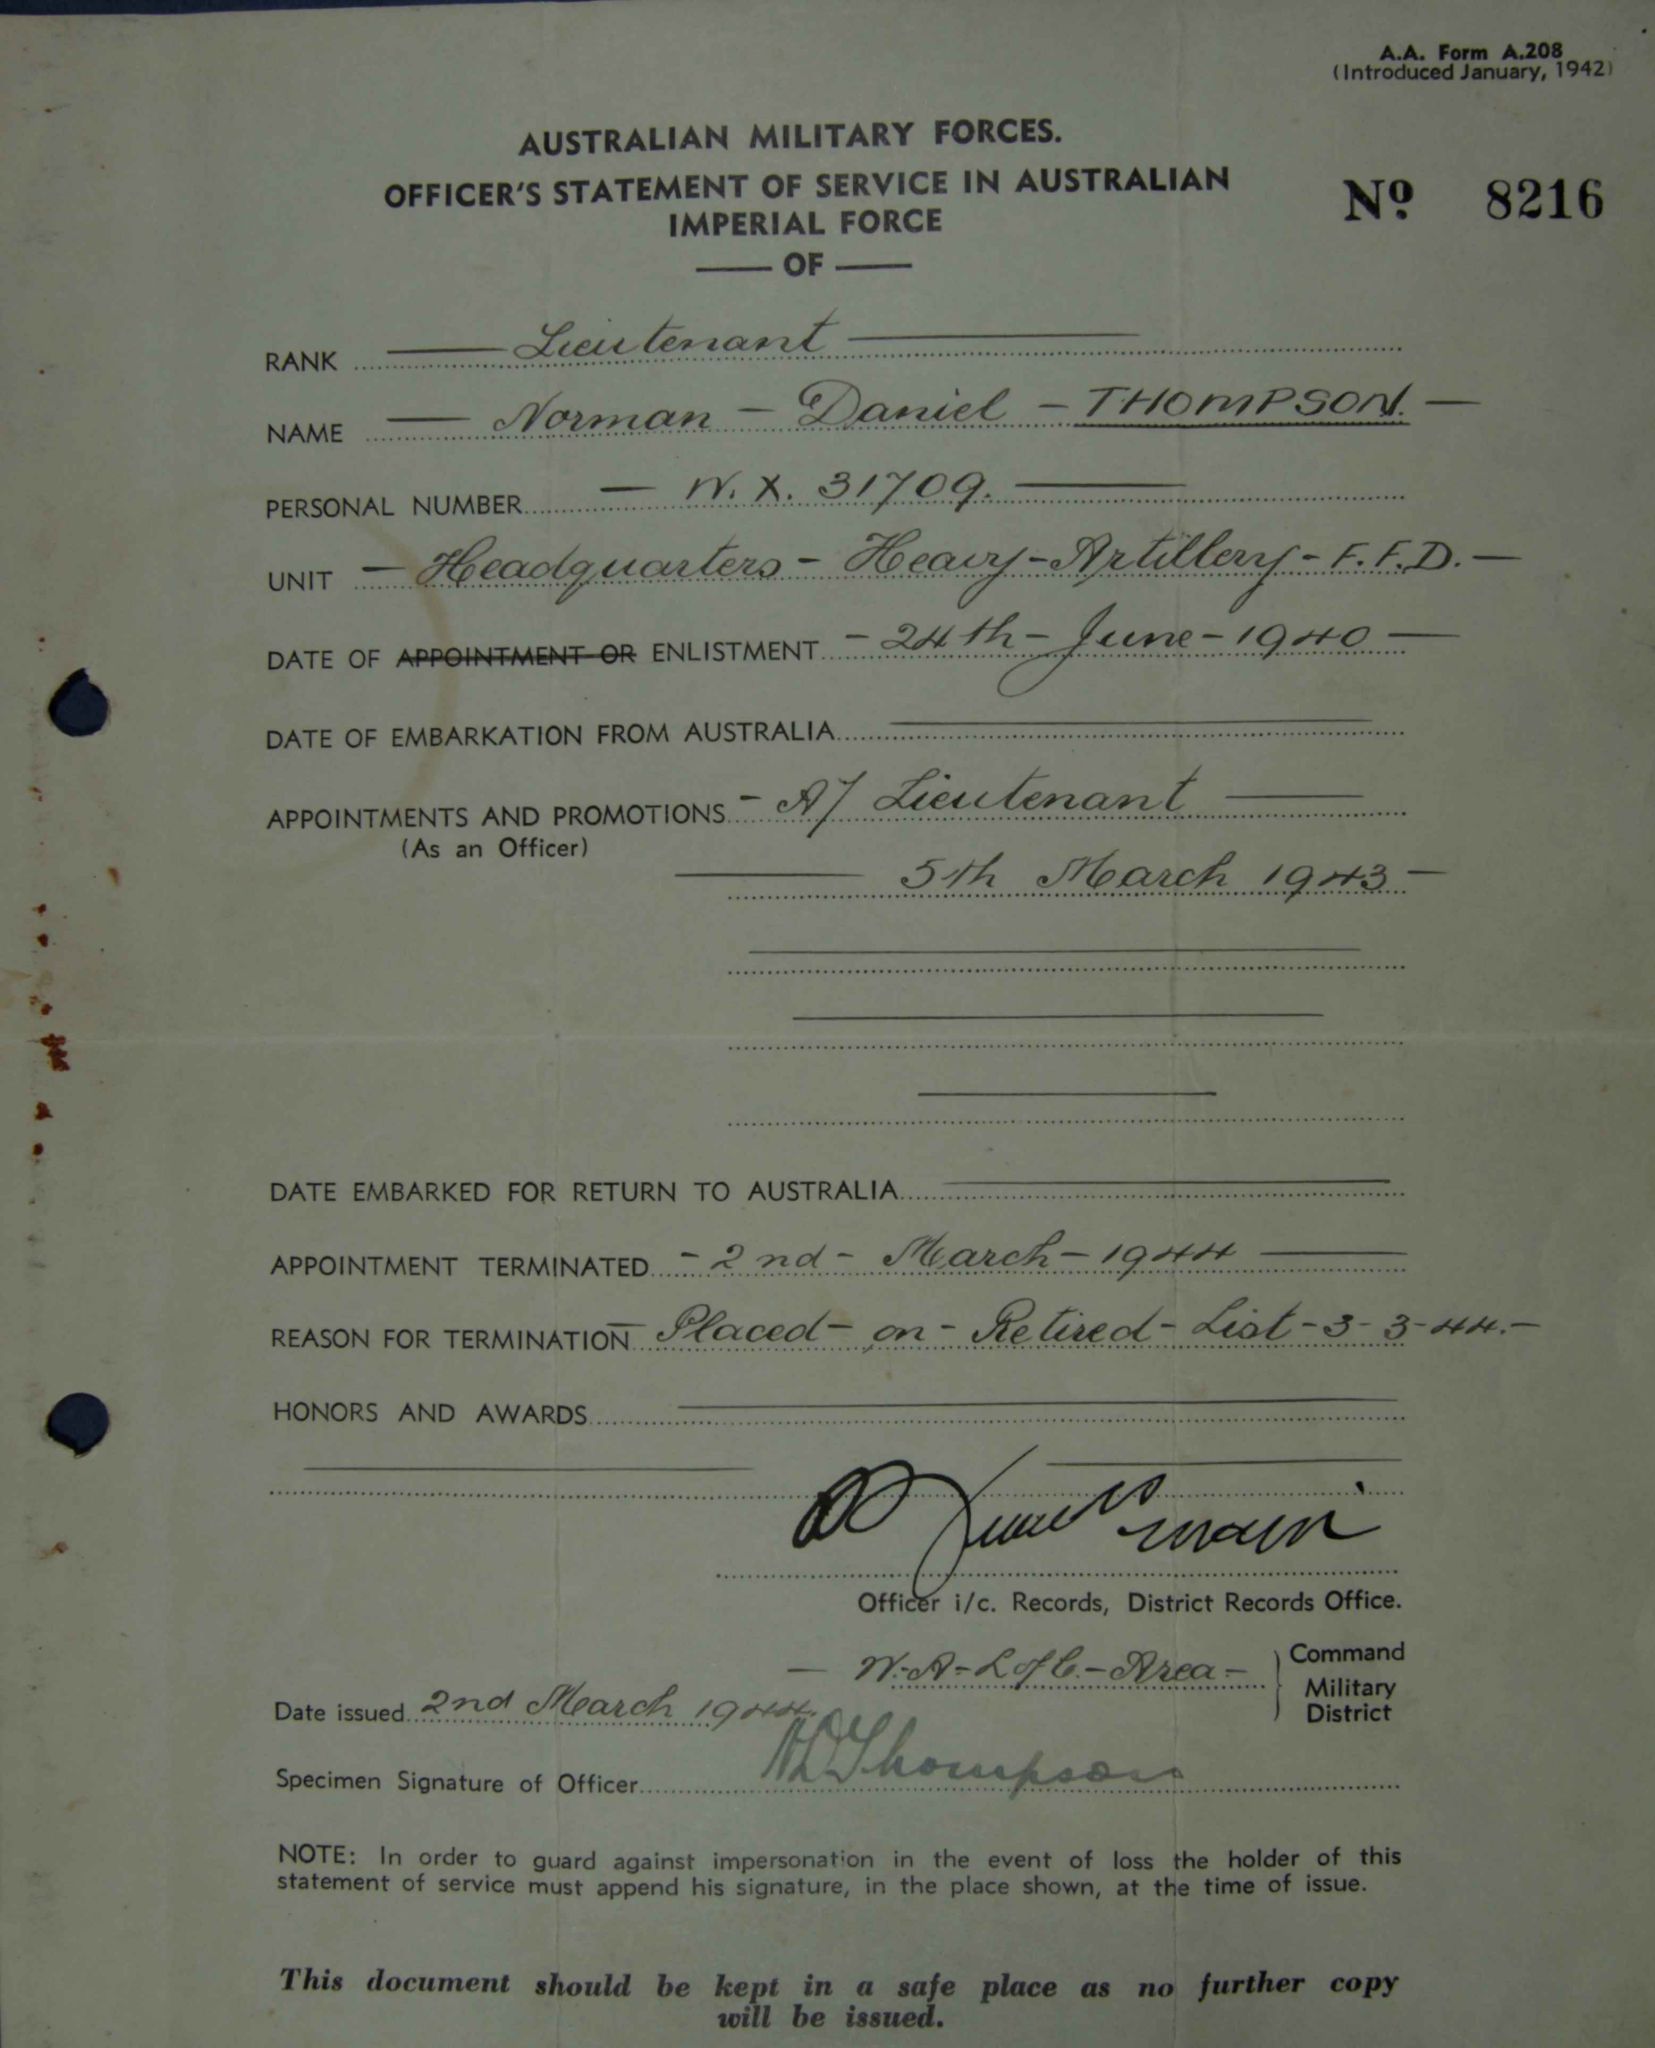 A.A. Form A.208
(Introduced January, 1942)
AUSTRALIAN MILITARY FORCES.
OFFICER'S STATEMENT OF SERVICE IN AUSTRALIAN
IMPERIAL FORCE
No 8216
— OF —
RANK — Lieutenant —
NAME — Norman — Daniel — THOMPSON. —
PERSONAL NUMBER — W. X. 31709. —
UNIT — Headquarters — Heavy — Artillery — F. F. D. —
DATE OF APPOINTMENT OR ENLISTMENT — 24th — June — 1940 —
DATE OF EMBARKATION FROM AUSTRALIA
APPOINTMENTS AND PROMOTIONS — A/ Lieutenant —
(As an Officer)
— 5th March 1943 —
DATE EMBARKED FOR RETURN TO AUSTRALIA
APPOINTMENT TERMINATED — 2nd — March — 1944 —
REASON FOR TERMINATION — Placed — on — Retired — List — 3 - 3 - 44. —
HONORS AND AWARDS
Officer i/c. Records, District Records Office.
— W. — A — L of C. — Area — } Command
Military
District
Date issued 2nd March 1944.
Specimen Signature of Officer NDThompson
NOTE: In order to guard against impersonation in the event of loss the holder of this
statement of service must append his signature, in the place shown, at the time of issue.
This document should be kept in a safe place as no further copy
will be issued.